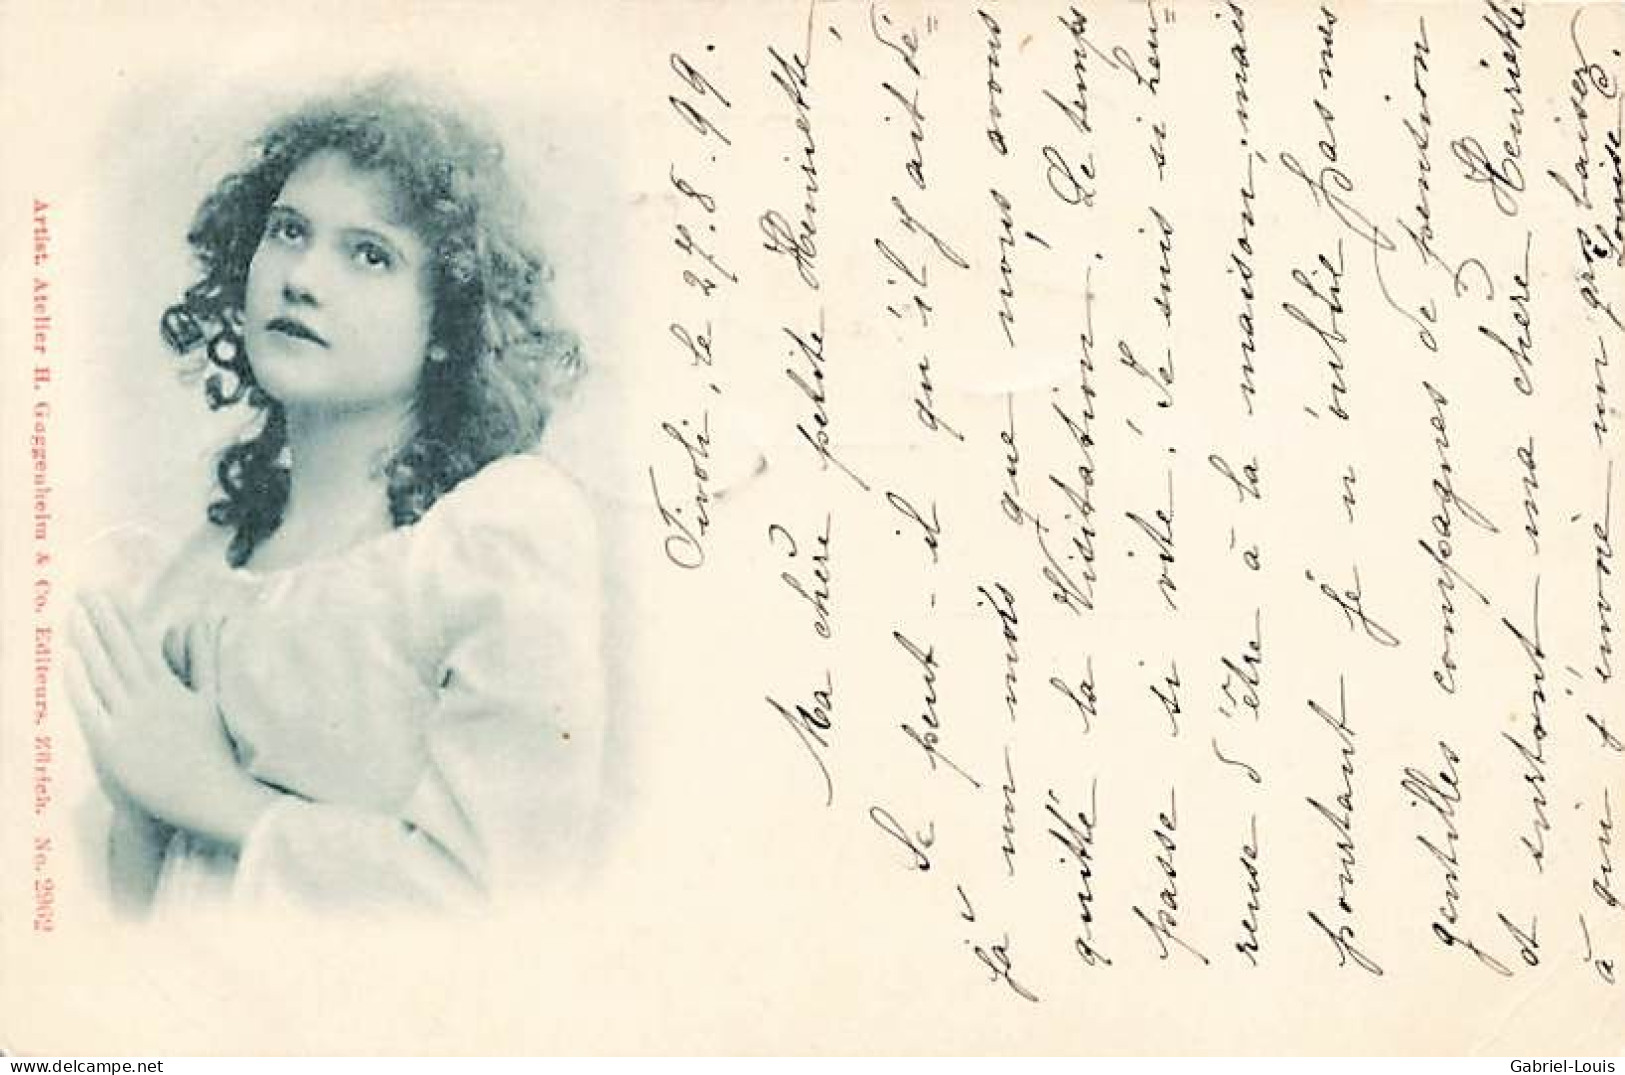 Artist. Atelier H. Guggenheim & Co. Editeurs, Zürich. No. 2962
Tivoli, le 27.8.99.
Ma chère petite Henriette,
Se peut-il qu'il y ait dé=
jà un mois que nous avons
quitté la Visitation. Le temps
passe si vite! Je suis si heu=
reuse d'être à la maison, mais
pourtant je n'oublie pas mes
gentilles compagnes de pension
et surtout ma chère Henriette
à qui j'envoie un gros baiser
Louise.
Gabriel-Louis